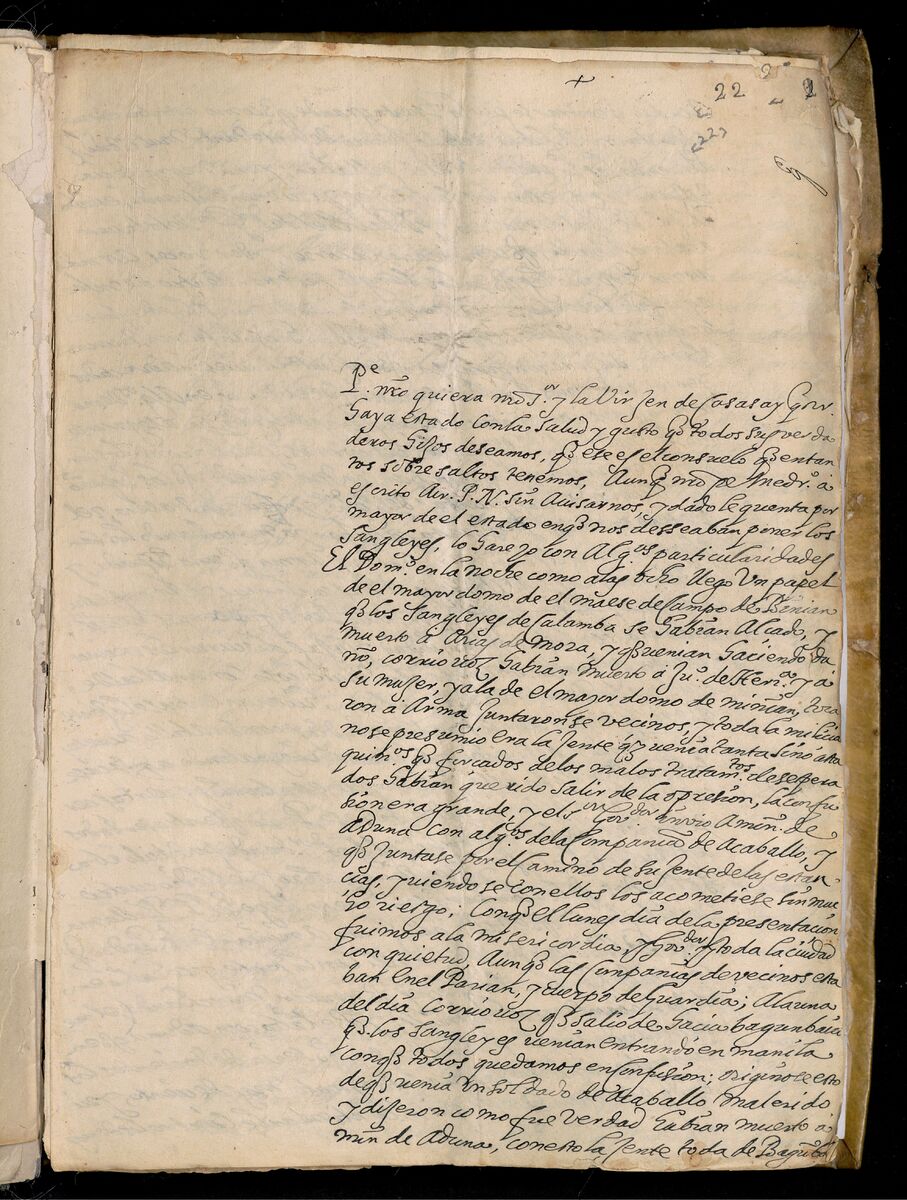 +
22
223
Pe
P. nro quiera nro Sor. y la Virjen de Casasay Gour.
Gaya estado con la Salud y gusto q̃ todos sus verda
deros Gijos deseamos, q̃ ese es el consuelo q̃ entan
tos sobresaltos tenemos, Aunq̃ nro Pe Anedro. á
escrito Avr. P. N. sin Avisarnos, y dadole quenta por
mayor de el estado enq̃ nos desseaban poner los
Sangleyes, lo Gare yo con Algos. particularidades
El Domo. en la noche como alas ocho llego Un papel
de el mayordomo de el maese de Campo de Binian
q̃ los Sangleyes de Calamba se Gabian Alcado, y
muerto á Arias de Mora, y q̃ venian Gaciendo da
ño, corrio voz Gabian muerto á Ju. de Herra. y á
su mujer, y ala de el mayordomo de minian, toca
ron á Arma Juntaronse vecinos, y toda la milicia
no se presumio era la Jente q̃ venia tanta sino asta
quinos. q̃ forcados de los malos tratamtos. desespera
dos Gabian querido Salir de la opresion, la confu
sion era grande, y el sr Gouor. envio Amin. de
Aduna con algos. de la Compania de Acaballo, y
q̃ Juntase por el Camino de su Jente de las estan
cias, y viendose con ellos los acometiese sin mu
Go riesgo; Conq̃ el lunes dia de la presentacion
fuimos ala misericordia, y Gouor. y toda la ciudad
con quietud, Aunq̃ las Companias de vecinos esta
ban Enel Parian, y cuerpo de Guardia; Ala una
del dia corrio voz q̃ salio de Gacia bagunbaia
q̃. los Sangleyes venian entrando en manila
conq̃ todos quedamos en Confusion; originose esto
de q̃ venia Un Soldado de Acaballo mal erido
y dijeron como fue verdad Gabian muerto á
min de Aduna, con esto la Jente toda de